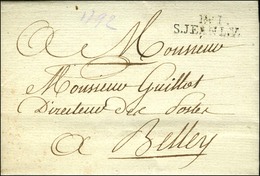 1792
A Monsieur
Monsieur Guillot
Directeur des Postes
A Belley